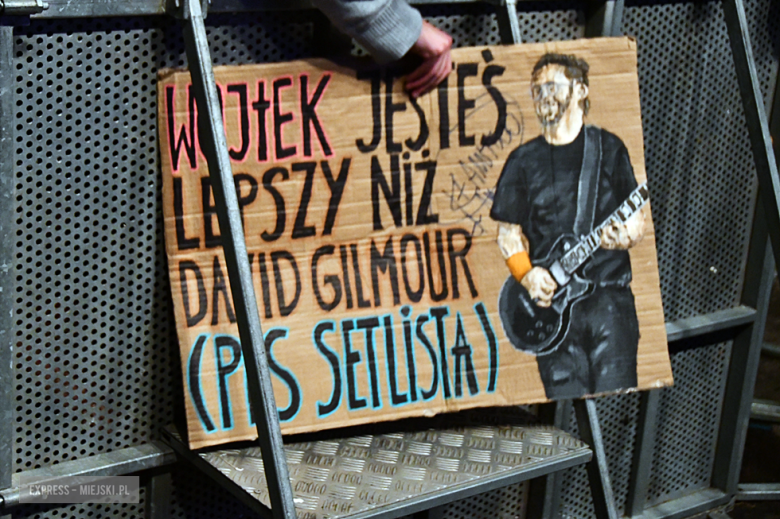 WOJTEK JESTEŚ
LEPSZY NIŻ
DAVID GILMOUR
(PS SETLISTA)
EXPRESS - MIEJSKI.PL